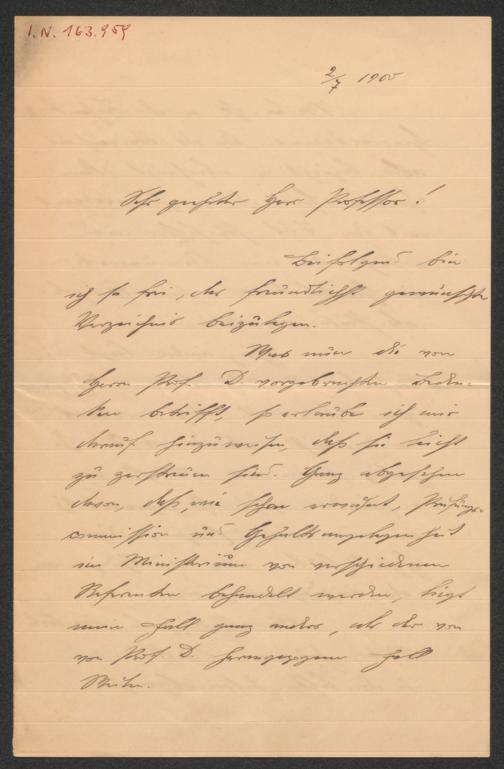 I.N. 163.959
2/7 1900
Sehr geehrter Herr Professor!
Beifolgend bin
ich so frei, das freundlichst gewünschte
Verzeichnis beizulegen.
Was nun die von
Herrn Prof. D. vorgebrachten Beden-
ken betrifft, so erlaube ich mir
darauf hinzuweisen, daß sie leicht
zu zerstreuen sind. Ganz abgesehen
davon, daß, wie schon erwähnt, Prüfungs-
commission und Gehaltsangelegenheit
im Ministerium von verschiedenen
Referenten behandelt werden, liegt
mein Fall ganz anders, als der von
von Prof. D. herangezogene Fall